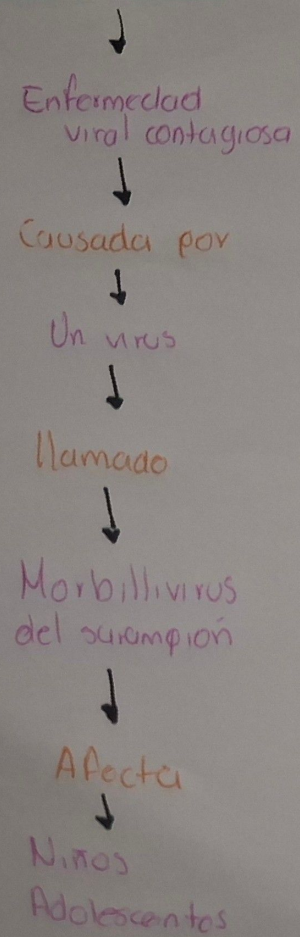 Enfermedad
viral contagiosa
Causada por
Un virus
llamado
Morbillivirus
del sarampión
Afecta
Niños
Adolescentes